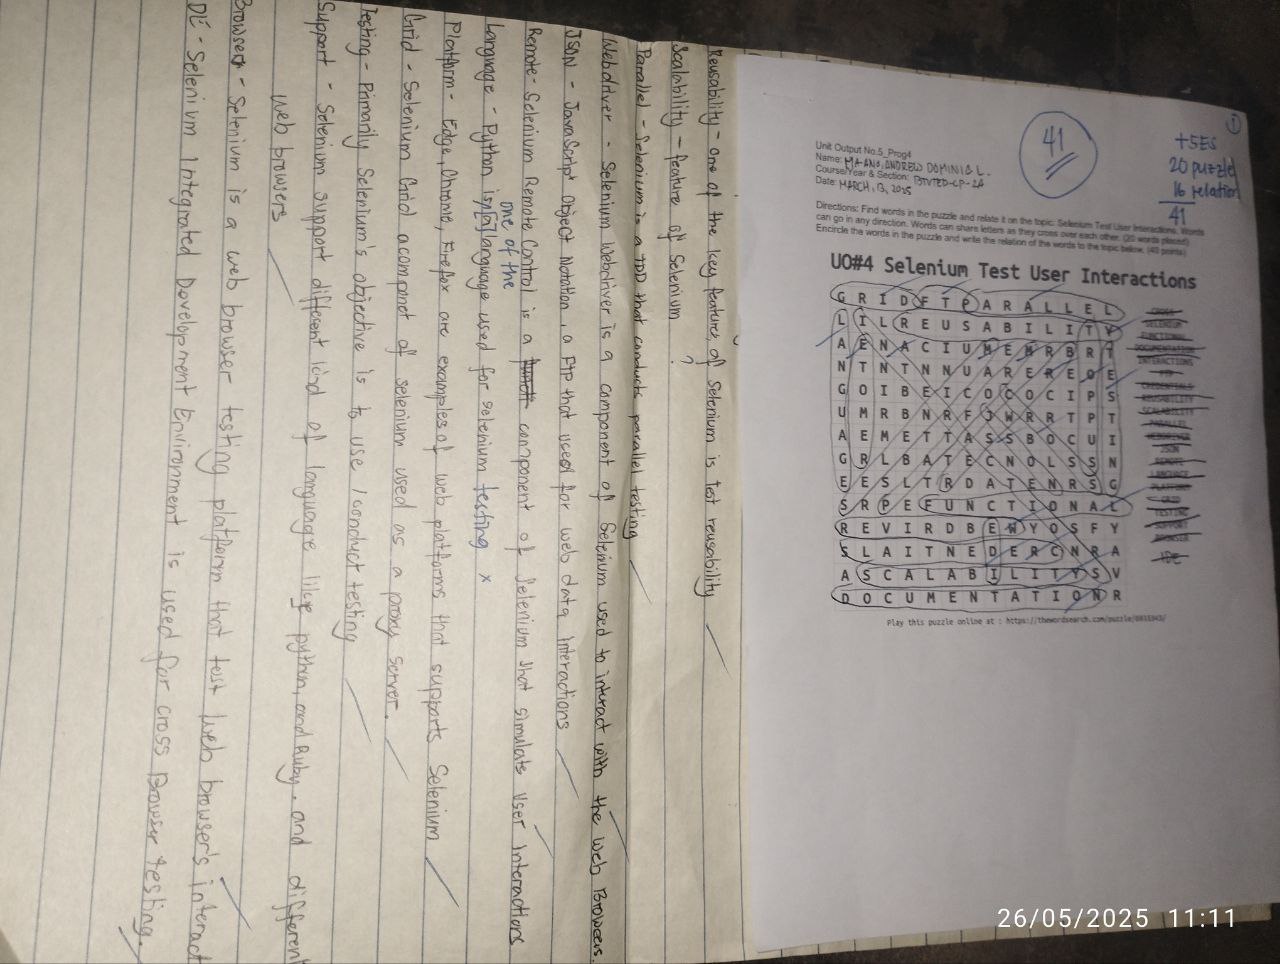 ①
+5EC
20 puzzle
16 relation
41
41
Unit Output No.5_Prog4
Name: MA-ANO, ANDREO DOMINIC L.
Course/Year & Section: BTVTED-CP-2A
Date: MARCH, 13, 2025
Directions: Find words in the puzzle and relate it on the topic: Selenium Test User Interactions. Words
can go in any direction. Words can share letters as they cross over each other. (20 words
Encircle the words in the puzzle and write the relation of the words to the topic below. (40 points)
UO#4 Selenium Test User Interactions
G R I D F T P A R A L L E L
L I L R E U S A B I L I T Y
A E N A C I U M E M R B R T
N T N T N N U A R E R E O E
G O I B E I C O C O C I P S
U M R B N R F J W R R T P T
A E M E T T A S S B O C U I
G R L B A T E C N O L S S N
E E S L T R D A T E N R S G
S R P E F U N C T I O N A L
R E V I R D B E W Y O S F Y
S L A I T N E D E R C N R A
A S C A L A B I L I T Y S V
D O C U M E N T A T I O N R
Play this puzzle online at : https://thewordsearch.com/puzzle/
Reusability - one of the key features, of Selenium is test reusability
Scalability - feature of Selenium ?
Parallel - Selenium is a TDD that conducts parallel testing
Webdriver - Selenium Webdriver is a component of Selenium used to interact with the web Browsers.
JSON - JavaScript Object Notation, a FTP that used for web data interactions
Remote - Selenium Remote Control is a component of Selenium that simulats user Interactions
one of the
Language - Python is [a] language used for selenium testing x
Platform - Edge, Chrome, Firefox are examples of web platforms that supports Selenium
Grid - Selenium Grid a componet of selenium used as a proxy server.
Testing - Primarily Selenium's objective is to use / conduct testing
Support - Selenium support different kind of language like python, and Ruby. and different
web browsers
Browser - Selenium is a web browser testing platform that test web browser's interact
DE - Selenium Integrated Development Environment is used for cross Browser testing.
26/05/2025 11:11